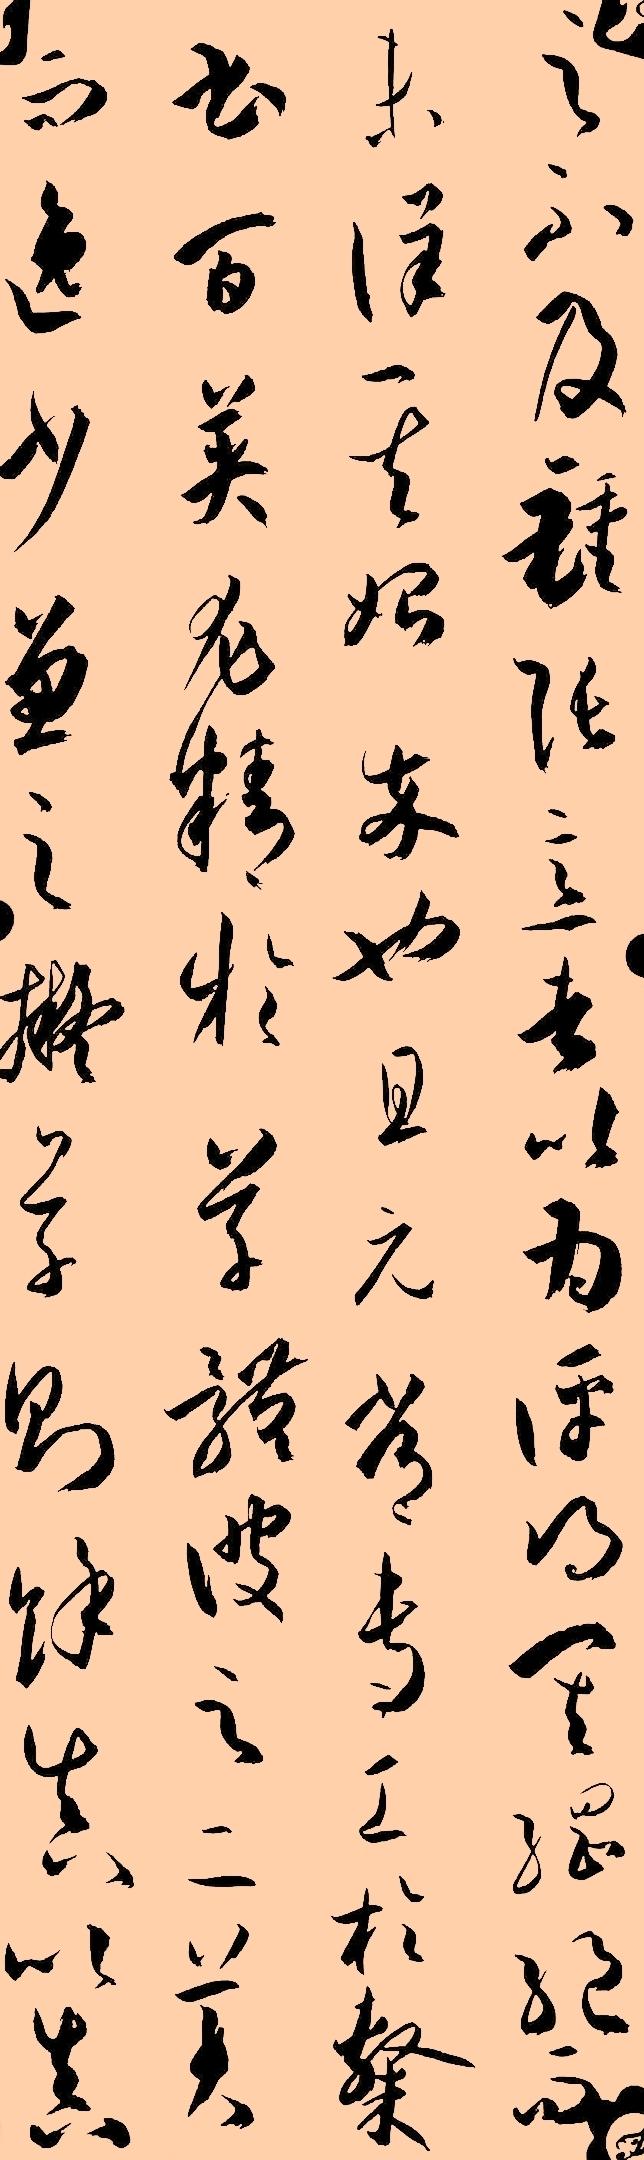 之不及鍾張意者以为評得其綱紀而
未詳其始卒也且元常專工於隸
书百英尤精於草體彼之二美
而逸少兼之擬草則餘真比真